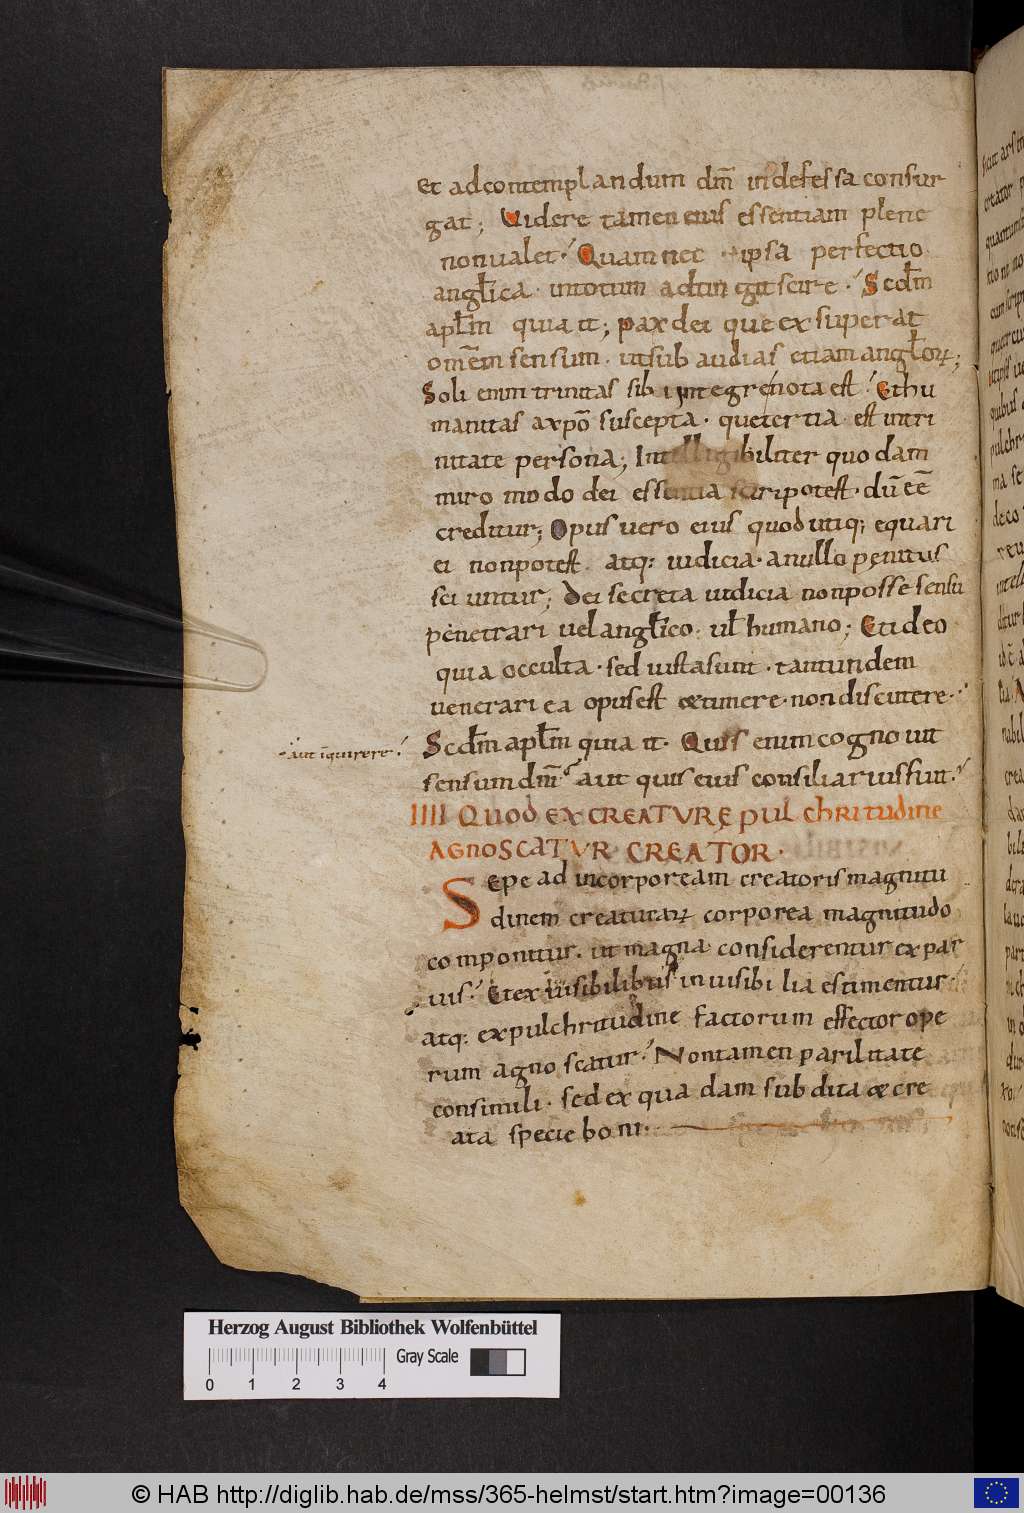 et adcontemplandum dm̅ indefessa consur
gat; Uidere tamen eius essentiam plene
nonualet. Quam nec ipsa perfectio
angl̅ica intotum adtin git scire. Scdm̅
apl̅m quia it; pax dei que exsuperat
om̅em sensum. utsub audias etiam angl̅oꝝ;
Soli enim trinitas sib i integre nota est. Et hu
manitas a xp̅o suscepta. que tertia est intri
nitate persona; Intelligibiliter quodam
miro modo dei essentia sciri potest. du̅ ee̅
creditur; Opus uero eius quod utiq; equari
ei nonpotest. atq: iudicia. anullo pęnitus
sci untur; Dei secreta iudicia nonposse sensu
penetrari uel angl̅ico. ul̅ humano; Et ideo
quia occulta. sed iusta sunt. tantundem
uenerari ea opus est & timere. non discutere.
- aut i̅quirere.
Scdm̅ apl̅m quia it. Quis enim cognouit
sensum dm̅ aut quis eius consiliarius fuit.
IIII QUOD EX CREATURĘ PULCHRITUDINE
AGNOSCATUR CREATOR.
Sepe ad incorpoream creatoris magnitu
dinem creaturaꝝ corporea magnitudo
componitur. ut magna considerentur ex par
uis. Et ex uisibilibus inuisibi lia estimentur.
atq: expulchritudine factorum effector ope
rum agnoscatur. Non tamen parilitate
consimili. sed ex qua dam subdita & cre
ata specie boni.
Herzog August Bibliothek Wolfenbüttel
Gray Scale
0 1 2 3 4
© HAB http://diglib.hab.de/mss/365-helmst/start.htm?image=00136